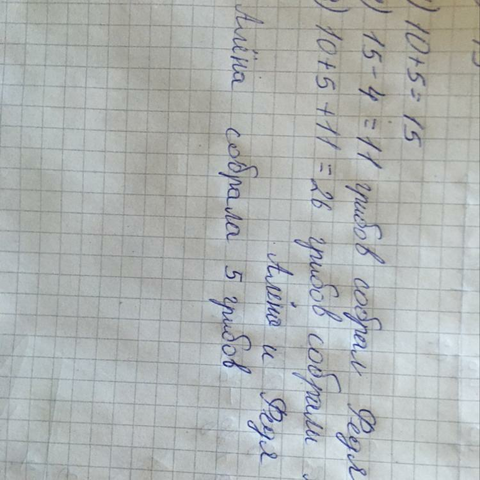 ) 10+5=15
) 15-4=11 грибов собрал Федя
) 10+5+11=26 грибов собрали
Алёна и Федя
Алёна собрала 5 грибов